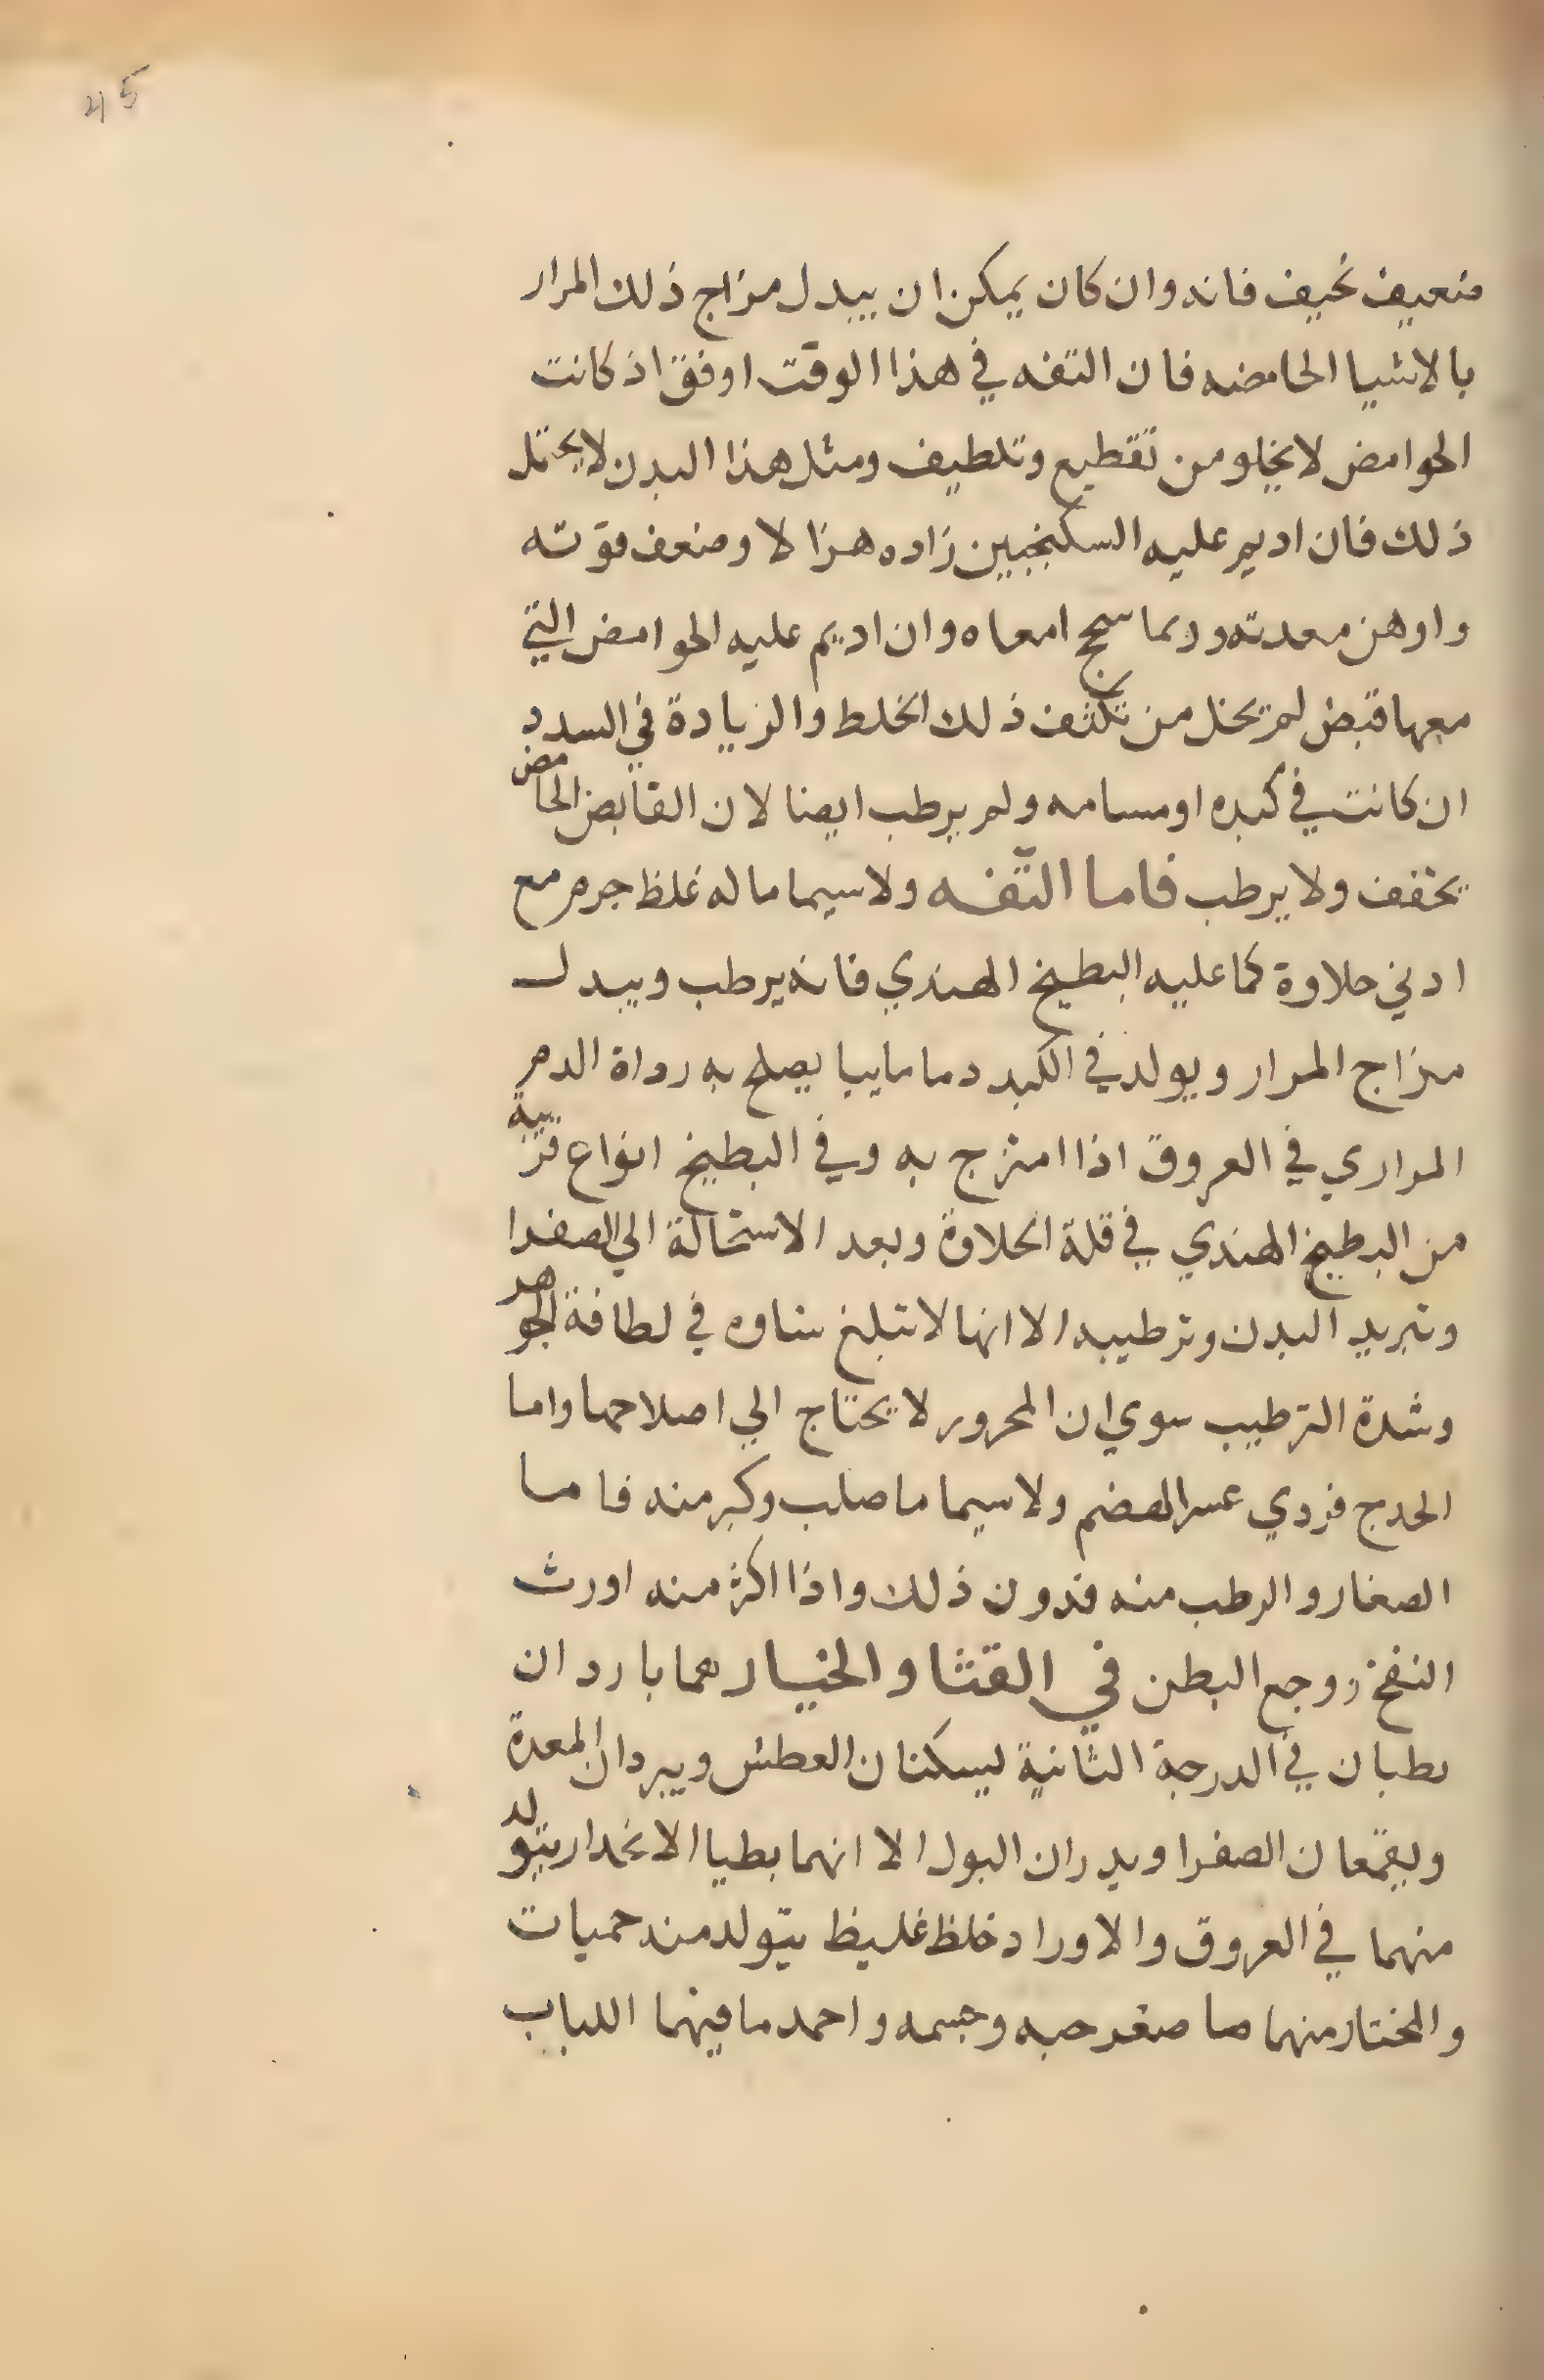 45
ضعيف نحيف فانه وان كان يمكن ان يبدل مزاج ذلك المرار
بالاشيا الحامضه فان التفه في هذا الوقت اوفق اذ كانت
الحوامض لا يخلو من تقطيع وتلطيف ومثل هذا البدن لا يحتمل
ذلك فان اديم عليه السكنجبين زاده هزالا وضعف قوته
واوهن معدته وربما سحج امعاه وان اديم عليه الحوامض التي
معها قبض لم يخل من تكثف ذلك الخلط والزيادة في السدد
ان كانت في كبده او مسامه ولم يرطب ايضا لان القابض الحامض
يخفف ولا يرطب فاما التفه ولاسيما ما له غلظ جرم مع
ادني حلاوة كما عليه البطيخ الهندي فانه يرطب ويبدل
مزاج المرار ويولد في الكبد دما ماييا يصلح به رداة الدم
المراري في العروق اذا امتزج به وفي البطيخ انواع قريبة
من البرطيخ الهندي في قلة الحلاوة وبعد الاستحالة الي الصفرا
وتبريد البدن وترطيبه الا انها لا تبلغ شاوه في لطافة الجوهر
وشدة الترطيب سوي ان المحرور لا يحتاج الي اصلاحها واما
الحدج فردي عسر الهضم ولاسيما ما صلب وكبر منه فاما
الصغار والرطب منه فدون ذلك واذا اكثر منه اورث
النفخ ووجع البطن في القثا والخيار هما باردان
رطبان في الدرجة الثانية ليسكنان العطش ويبردان المعدة
ويقمعان الصفرا ويدران البول الا انهما بطيا الانحدار يتولد
منهما في العروق والاوراد خلظ غليظ يتولد منه حميات
والمختار منهما ما صغر حبه وجسمه واحمد ما فيهما اللباب